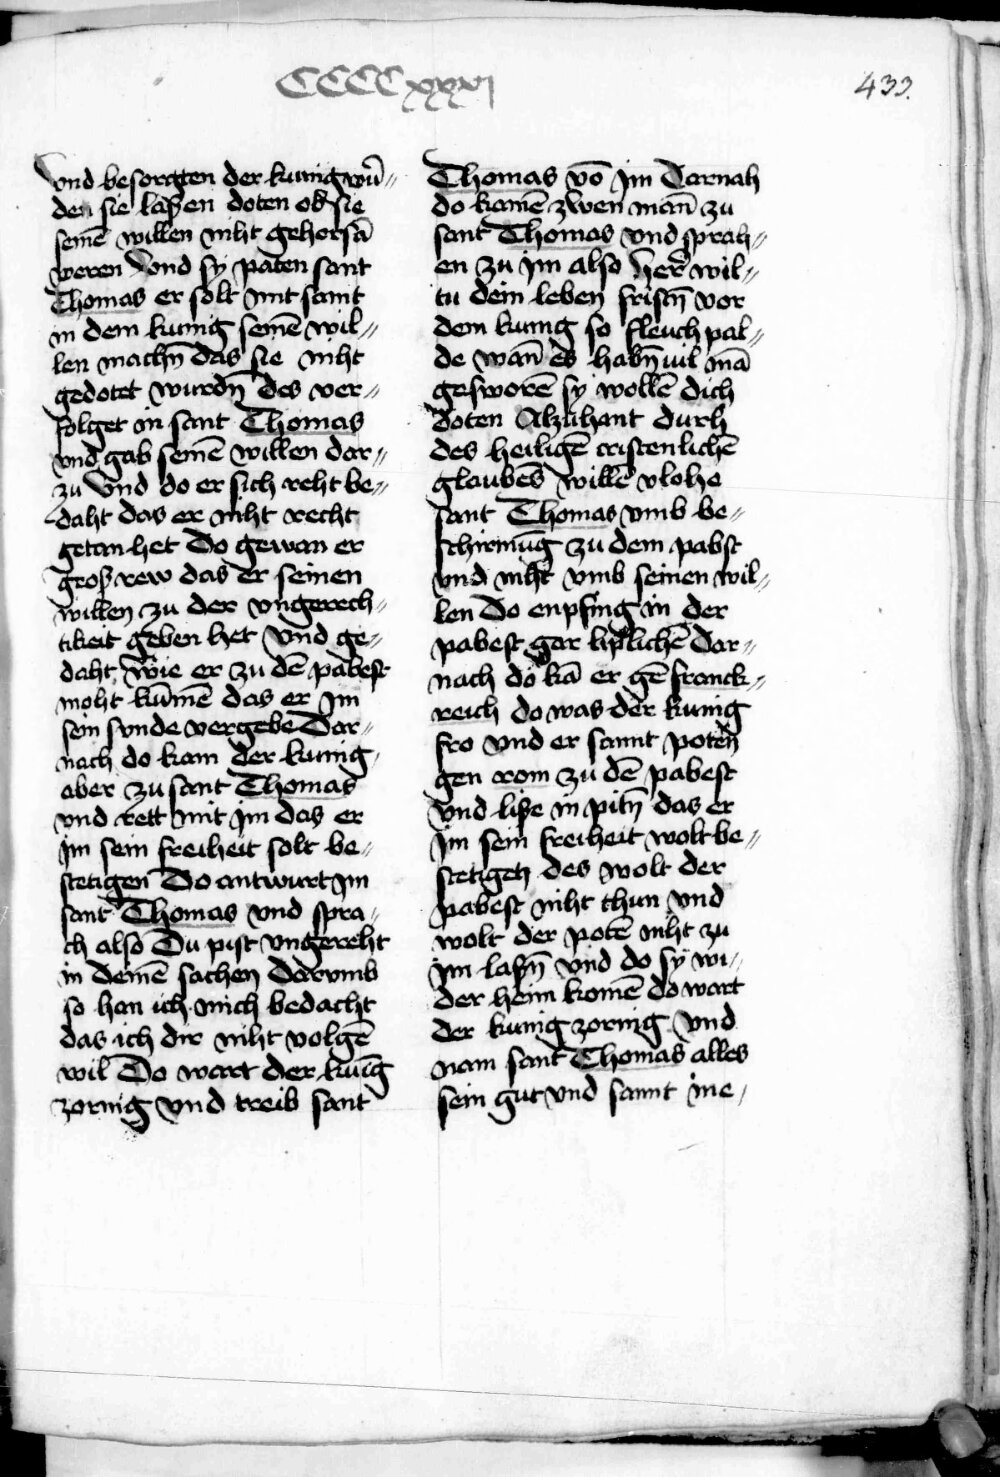 CCCCxxxvj
433.
Vnd besorgten der kunig wu̅r⸗
den sie laßen doten ob sie
seine̅ willen niht gehorsa̅
weren Vnd sy paten sant
Thomas er solt mit samt
in dem kunig seine̅ wil⸗
len mach̅n das sie niht
gedotet wurd̅n des ver⸗
folget in sant Thomas
vnd gab seine̅ willen dar⸗
zu Vnd do er sich reht be⸗
daht das er niht recht
getan het Do gewan er
groß rew das er seinen
willen zu der vngerech⸗
tikeit geben het Vnd ge⸗
daht wie er zu de̅ pabest
moht ku̅me̅ das er im
sein sunde vergebe Dar⸗
nach do kam der kunig
aber zu sant Thomas
vnd rett mit jm das er
jm sein freiheit solt be⸗
stetigen Do antwurt jm
sant Thomas vnd spra⸗
ch also Du pist vngereht
in deine̅ sachen darvmb
so han ich mich bedacht
das ich dir niht volge̅
wil Do wart der kuni̅g
zornig vnd treib sant
Thomas vo̅ jm Darnah
do kome̅ zwen man̅ zu
sant Thomas vnd sprah⸗
en zu jm also her̅ wil⸗
tu dein leben frist̅n vor
dem kunig so fleuch pal⸗
de wan̅ es hab̅n vil ma̅
geswore̅ sy wolle̅ dich
doten Alzuhant durh
des heilige̅ cristenliche̅
glaubes wille̅ vlohe
sant Thomas vmb be⸗
schirmu̅g zu dem pabst
vnd niht vmb seinen wil⸗
len Do enpfing in der
pabest gar lipliche̅ Dar⸗
nach do ka̅ er ge̅ franck⸗
reich do was der kunig
fro vnd er sannt poten
gen rom zu de̅ pabest
vnd liße in pit̅n das er
jm sein freiheit wolt be⸗
stetigen des wolt der
pabest niht thun vnd
wolt der pote̅ niht zu
jm laß̅n vnd do sy wi⸗
der heim kome̅ do wart
der kunig zornig vnd
nam sant Thomas alles
sein gut vnd sannt jne⸗